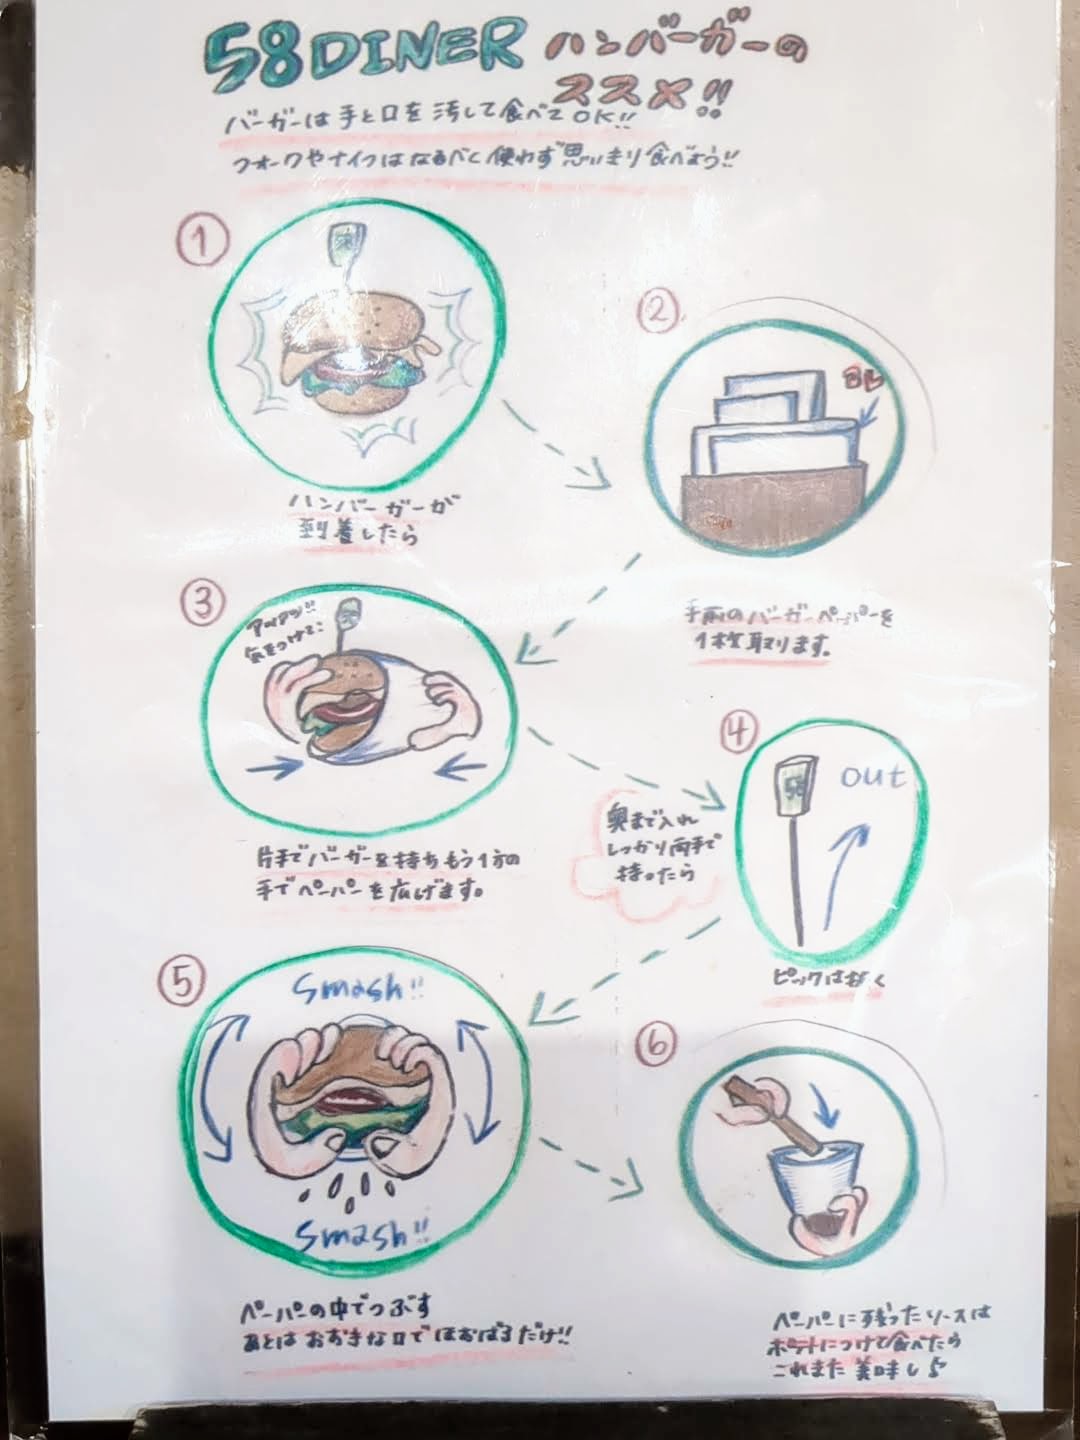 58DINER ハンバーガーの
ススメ!!
バーガーは手と口を汚して食べてOK!!
フォークやナイフはなるべく使わず思いきり食べよう!!
①
ハンバーガーが
到着したら
②
手前のバーガーペーパーを
1枚取ります。
③
アツアツ!!
気をつけて!
片手でバーガーを持ちもう1方の
手でペーパーを広げます。
奥まで入れ
しっかり両手で
持ったら
④
58
out
ピックはぬく
⑤
Smash!!
Smash!!
ペーパーの中でつぶす
あとはおおきな口でほおばるだけ!!
⑥
ペーパーに残ったソースは
ポテトにつけて食べたら
これまた美味し♪